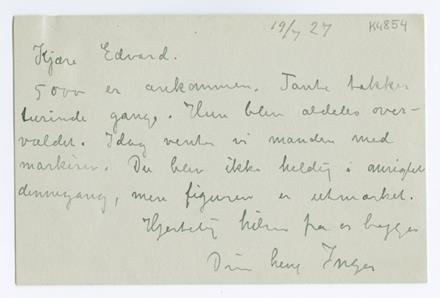 19/7 27 K4854
Kjære Edvard.
5000 er ankommen. Tante takker
tusinde gange. Hun blev aldeles over-
vældet. Idag venter vi manden med
markisen. Du blev ikke heldig i ansigtet
dennegang, men figuren er utmærket.
Hjertelig hilsen fra os begge
Din heng Inger